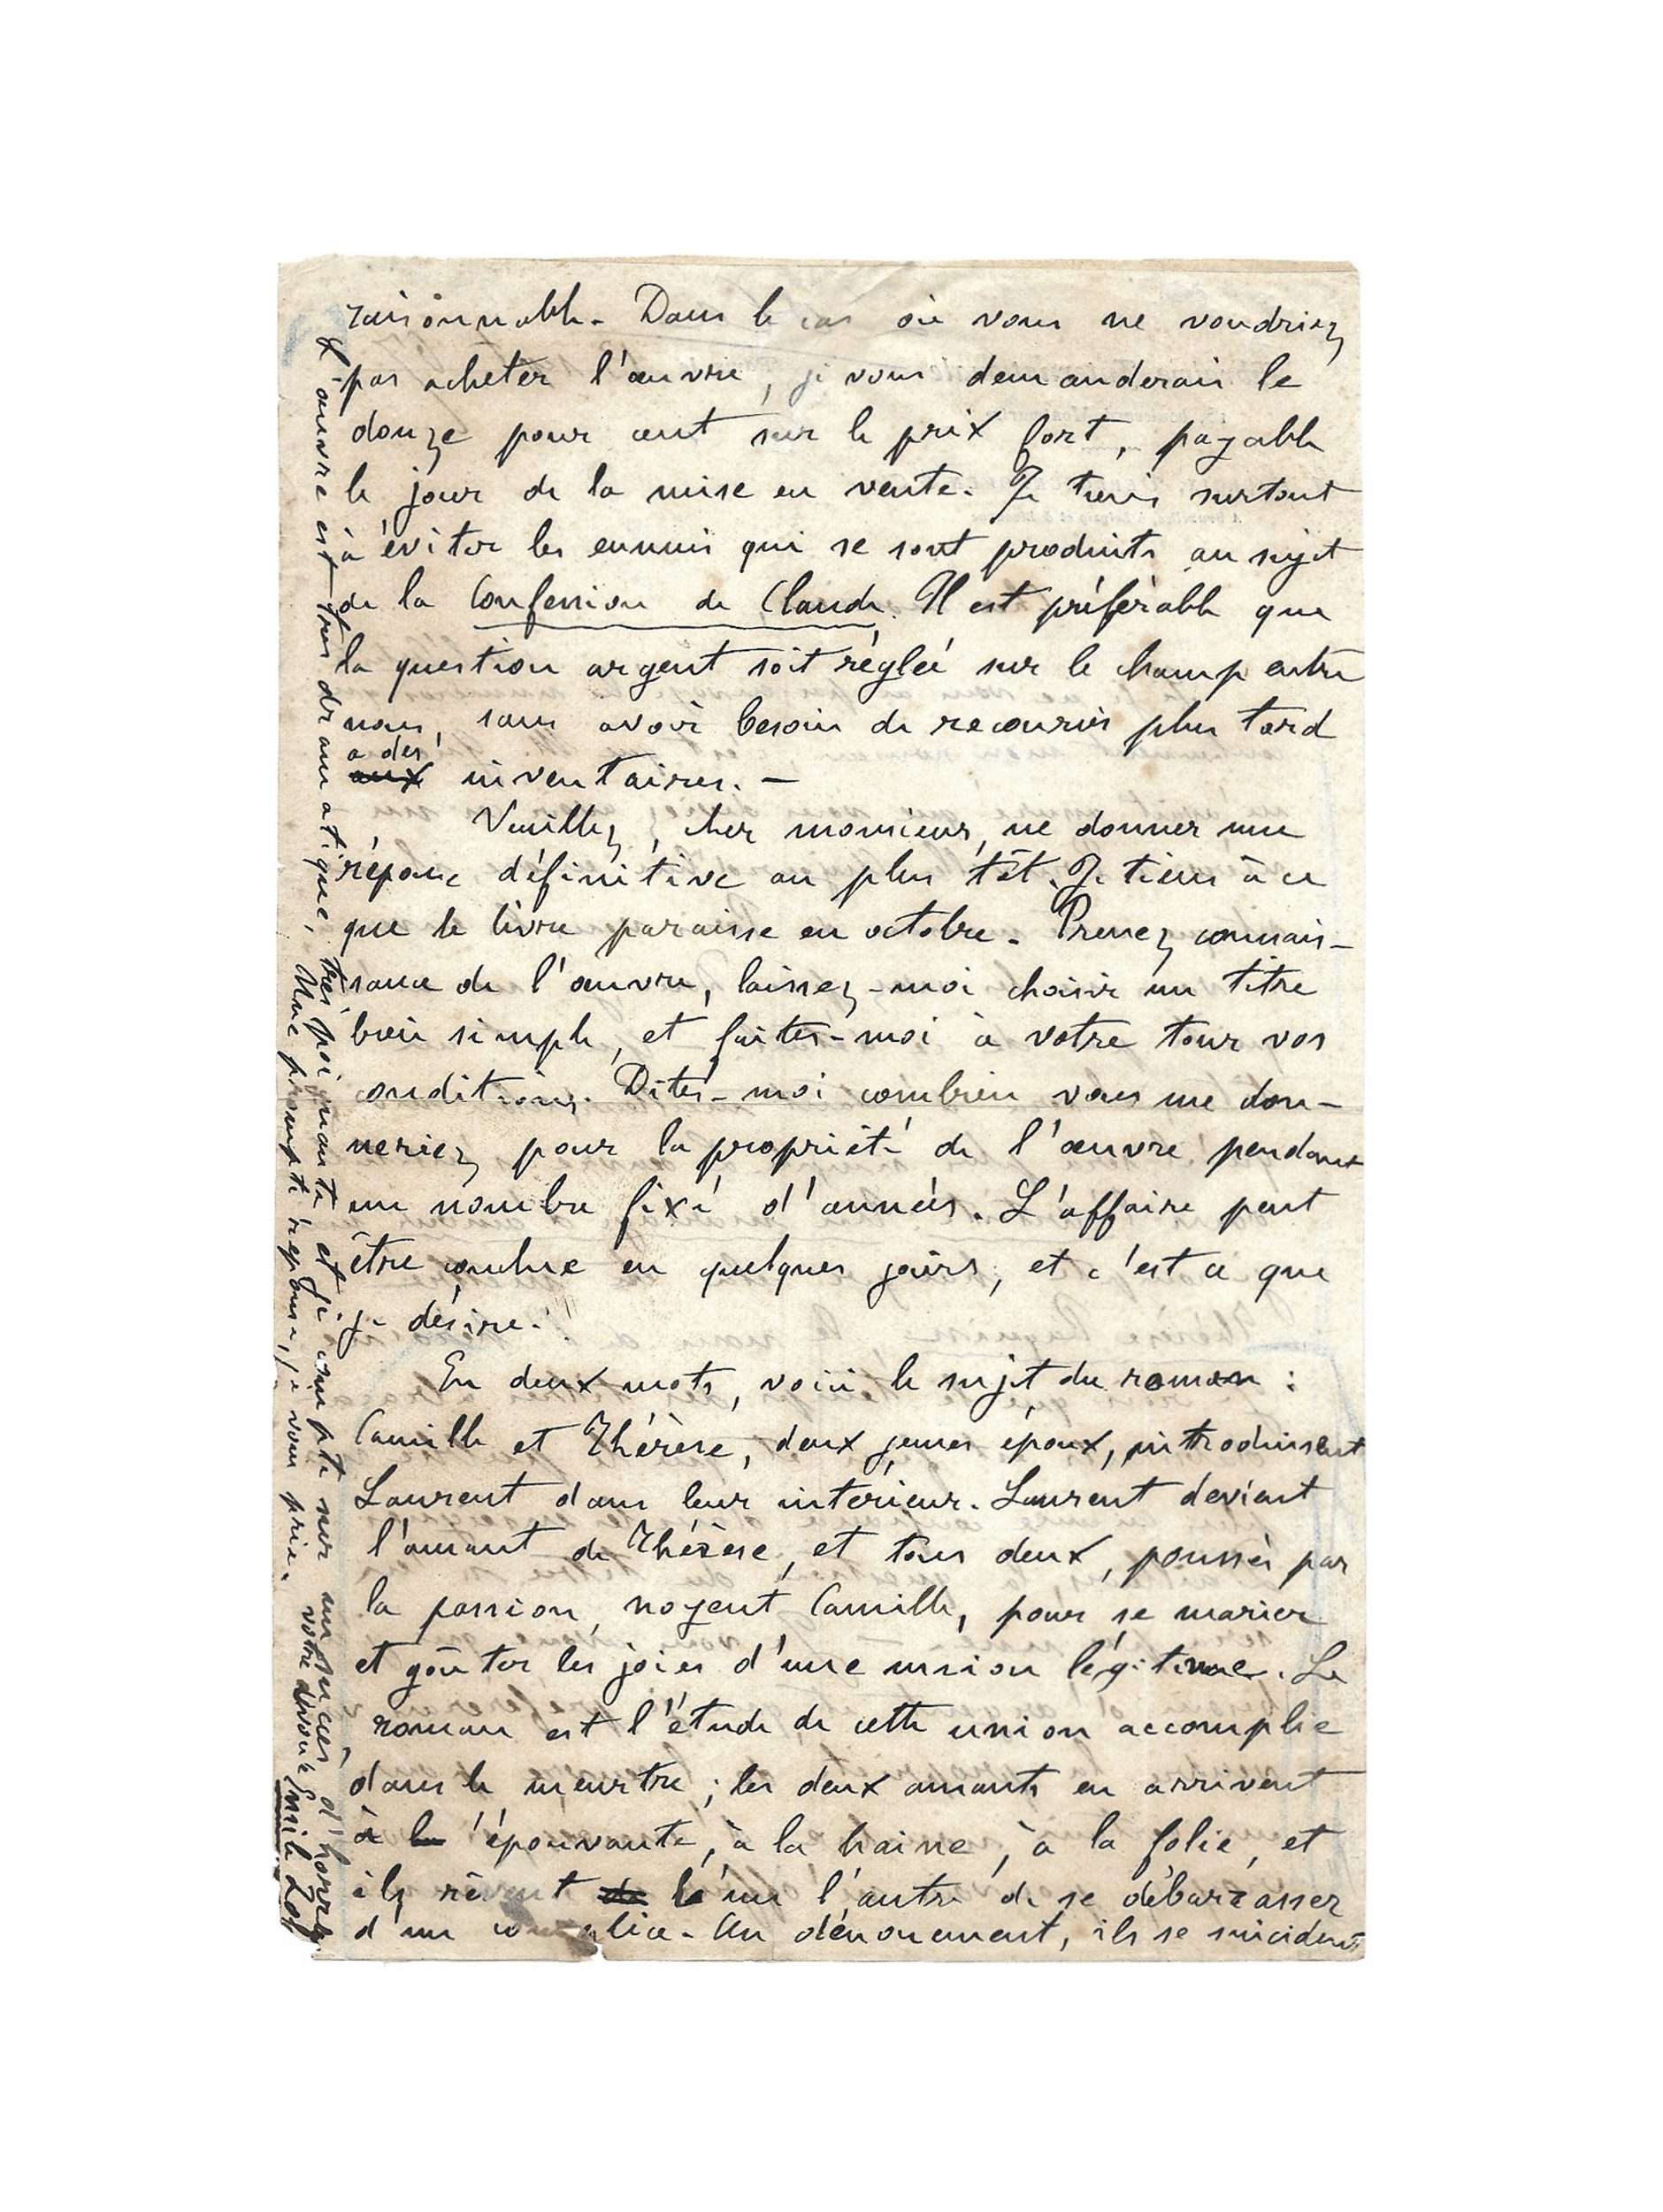 raisonnable. Dans le cas où vous ne voudriez
pas acheter l'œuvre, je vous demanderais le
douze pour cent sur le prix fort, payable
le jour de la mise en vente. Je tiens surtout
à éviter les ennuis qui se sont produits au sujet
de la Confession de Claude. Il est préférable que
la question argent soit réglée sur le champ entre
nous, sans avoir besoin de recourir plus tard
à des
aux inventaires. —
Veuillez, cher monsieur, me donner une
réponse définitive au plus tôt. Je tiens à ce
que le livre paraisse en octobre. Prenez connais-
sance de l'œuvre, laissez-moi choisir un titre
bien simple, et faites-moi à votre tour vos
conditions. Dites-moi combien vous me don-
neriez pour la propriété de l'œuvre pendant
un nombre fixé d'années. L'affaire peut
être conclue en quelques jours, et c'est ce que
je désire.
En deux mots, voici le sujet du roman :
Camille et Thérèse, deux jeunes époux, introduisent
Laurent dans leur intérieur. Laurent devient
l'amant de Thérèse, et tous deux, poussés par
la passion, noyent Camille, pour se marier
et goûter les joies d'une union légitime. Le
roman est l'étude de cette union accomplie
dans le meurtre ; les deux amants en arrivent
à la l'épouvante, à la haine, à la folie, et
ils rêvent de l'un l'autre de se débarrasser
d'un complice. Au dénouement, ils se suicident
L'œuvre est très dramatique, très poignante, et je compte sur un succès d'horreur
Une prompte réponse, je vous prie.
votre dévoué
Emile Zola